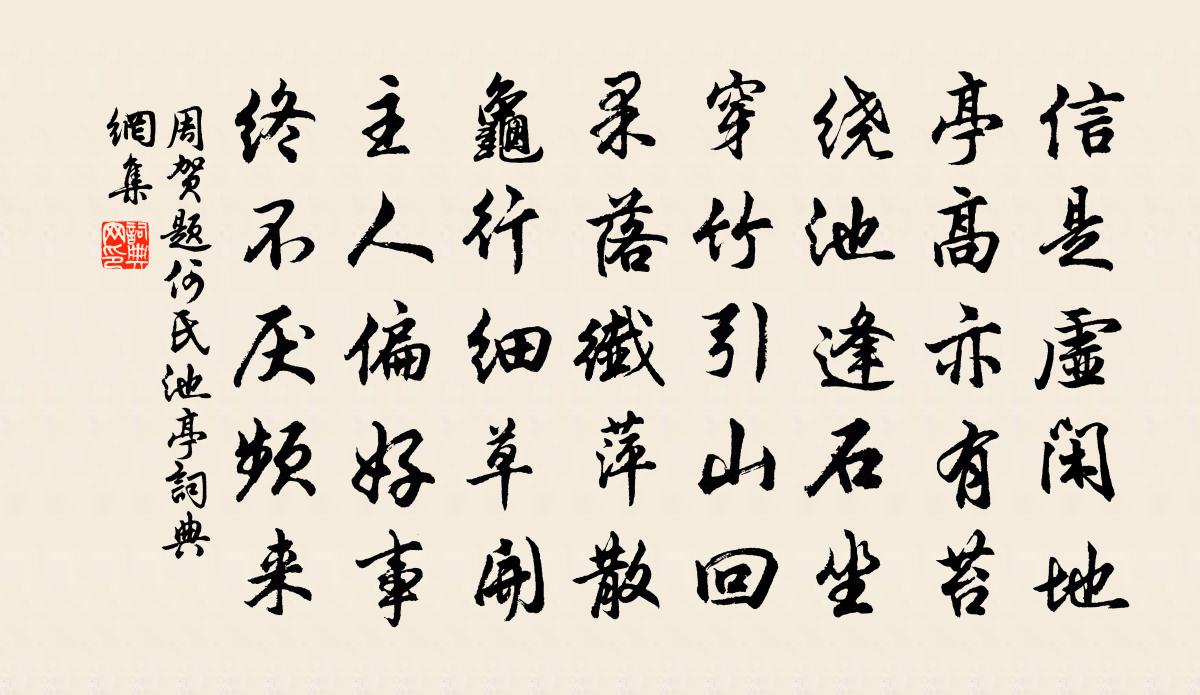 信是虛闲地
亭高亦有苔
绕池逢石坐
穿竹引山回
果落纖萍散
龜行细草開
主人偏好事
终不厌频来
周贺题何氏池亭詞典
網集
詞典网印